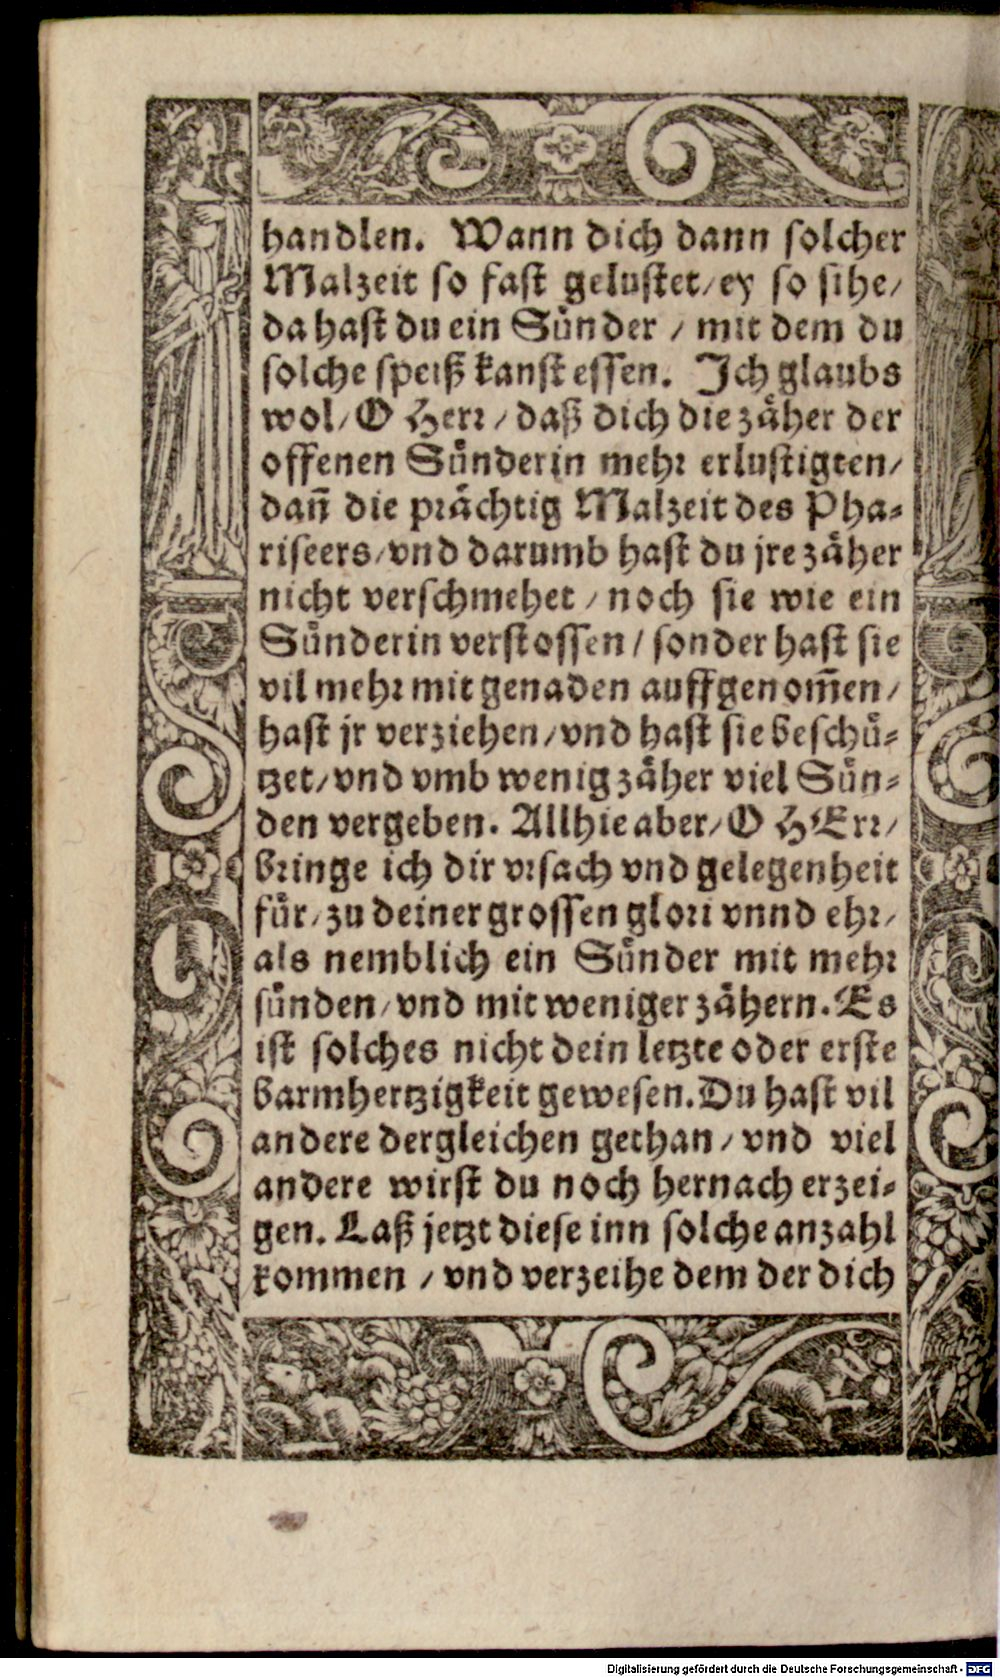 handlen. Wann dich dann solcher
Malzeit so fast gelustet/ ey so sihe/
da hast du ein Sünder / mit dem du
solche speiß kanst essen. Ich glaubs
wol/ O Herr / daß dich die zäher der
offenen Sünderin mehr erlustigten/
dañ die prächtig Malzeit des Pha-
riseers/ vnd darumb hast du jre zäher
nicht verschmehet / noch sie wie ein
Sünderin verstossen / sonder hast sie
vil mehr mit genaden auffgenom̃en/
hast jr verziehen/ vnd hast sie beschü-
tzet/ vnd vmb wenig zäher viel Sün-
den vergeben. Allhie aber/ O HErr/
bringe ich dir vrsach vnd gelegenheit
für/ zu deiner grossen glori vnnd ehr/
als nemblich ein Sünder mit mehr
sünden/ vnd mit weniger zähern. Es
ist solches nicht dein letzte oder erste
barmhertzigkeit gewesen. Du hast vil
andere dergleichen gethan / vnd viel
andere wirst du noch hernach erzei-
gen. Laß jetzt diese inn solche anzahl
kommen / vnd verzeihe dem der dich
Digitalisierung gefördert durch die Deutsche Forschungsgemeinschaft - DFG